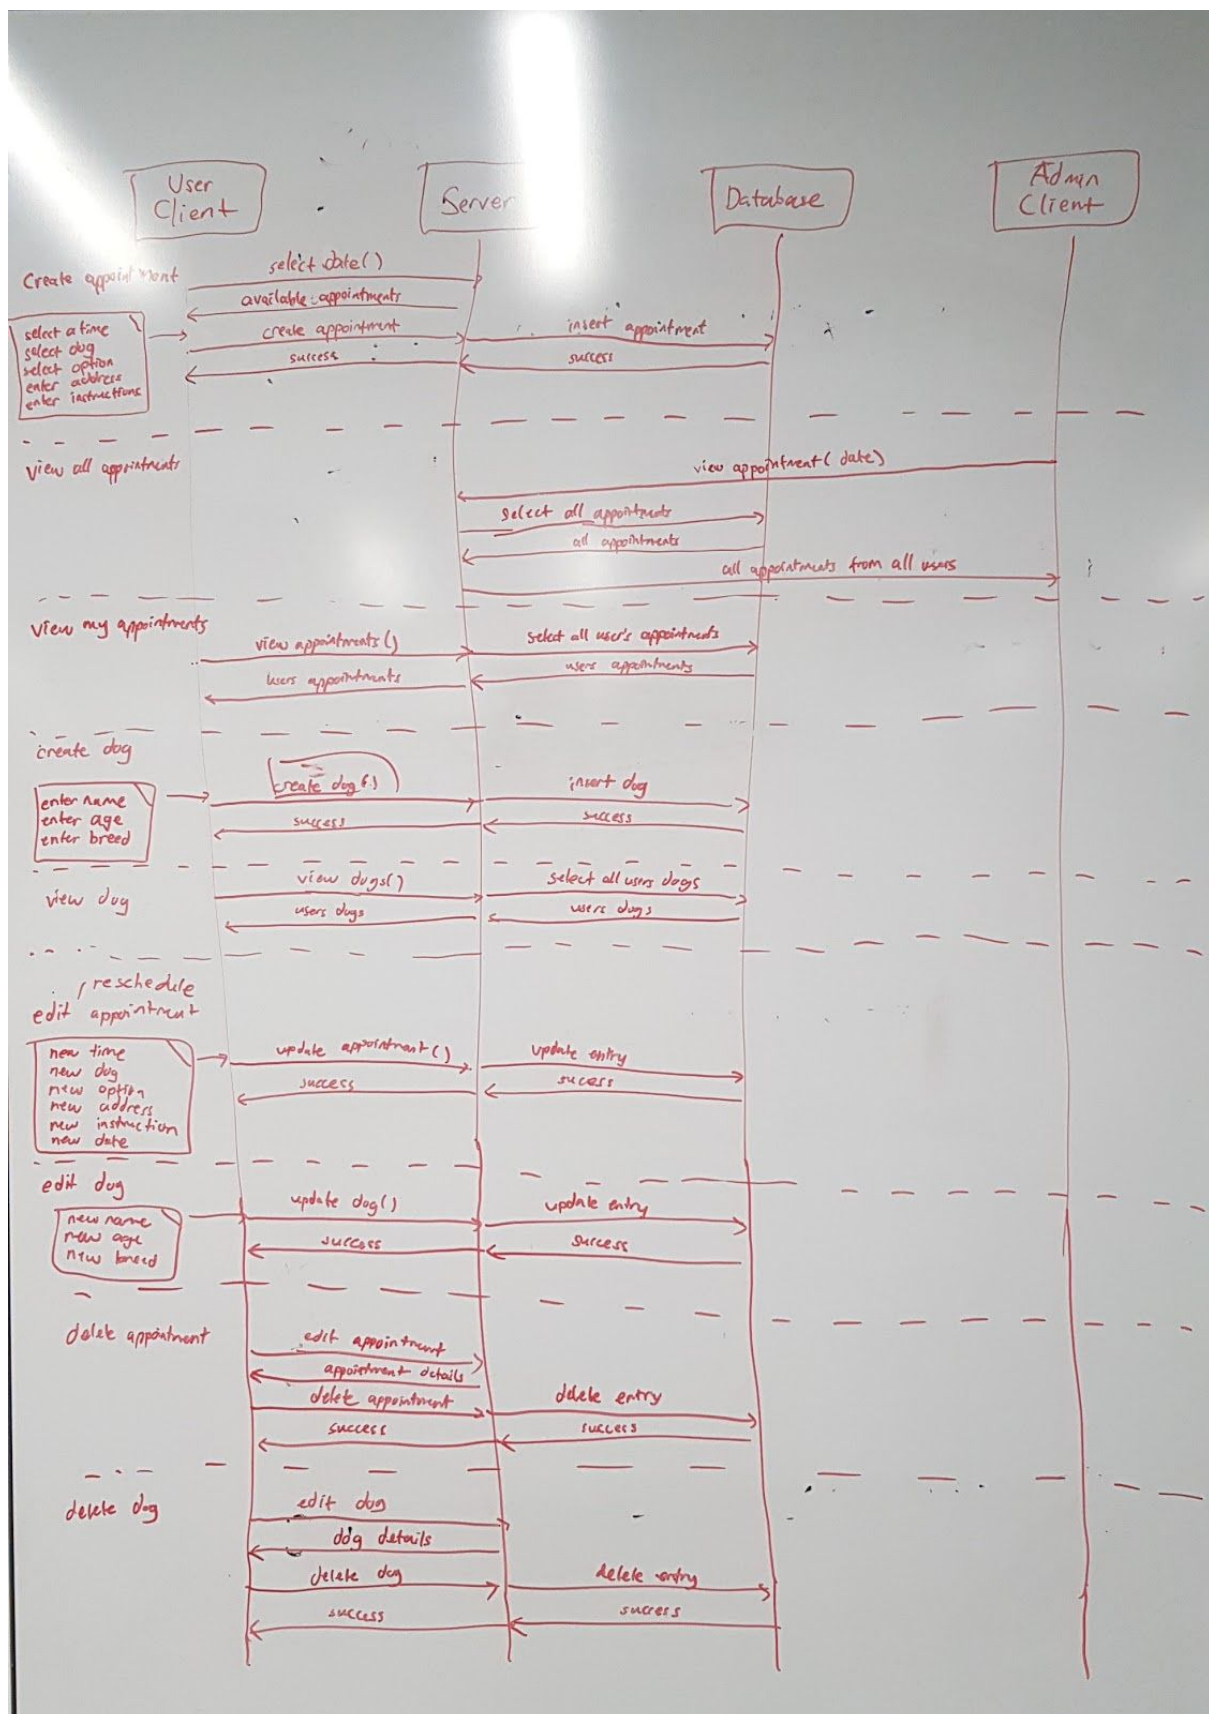 User
Client
Server
Database
Admin
Client
Create appointment
select date()
available appointments
select a time
select dog
select option
enter address
enter instructions
create appointment
insert appointment
success
success
view all appointments
view appointment(date)
select all appointments
all appointments
all appointments from all users
view my appointments
view appointments()
select all user's appointments
users appointments
users appointments
create dog
enter name
enter age
enter breed
create dog()
insert dog
success
success
view dog
view dogs()
select all users dogs
users dogs
users dogs
/reschedule
edit appointment
new time
new dog
new option
new address
new instruction
new date
update appointment()
update entry
success
sucess
edit dog
new name
new age
new breed
update dog()
update entry
success
success
delete appointment
edit appointment
appointment details
delete appointment
delete entry
success
success
delete dog
edit dog
dog details
delete dog
delete entry
success
success